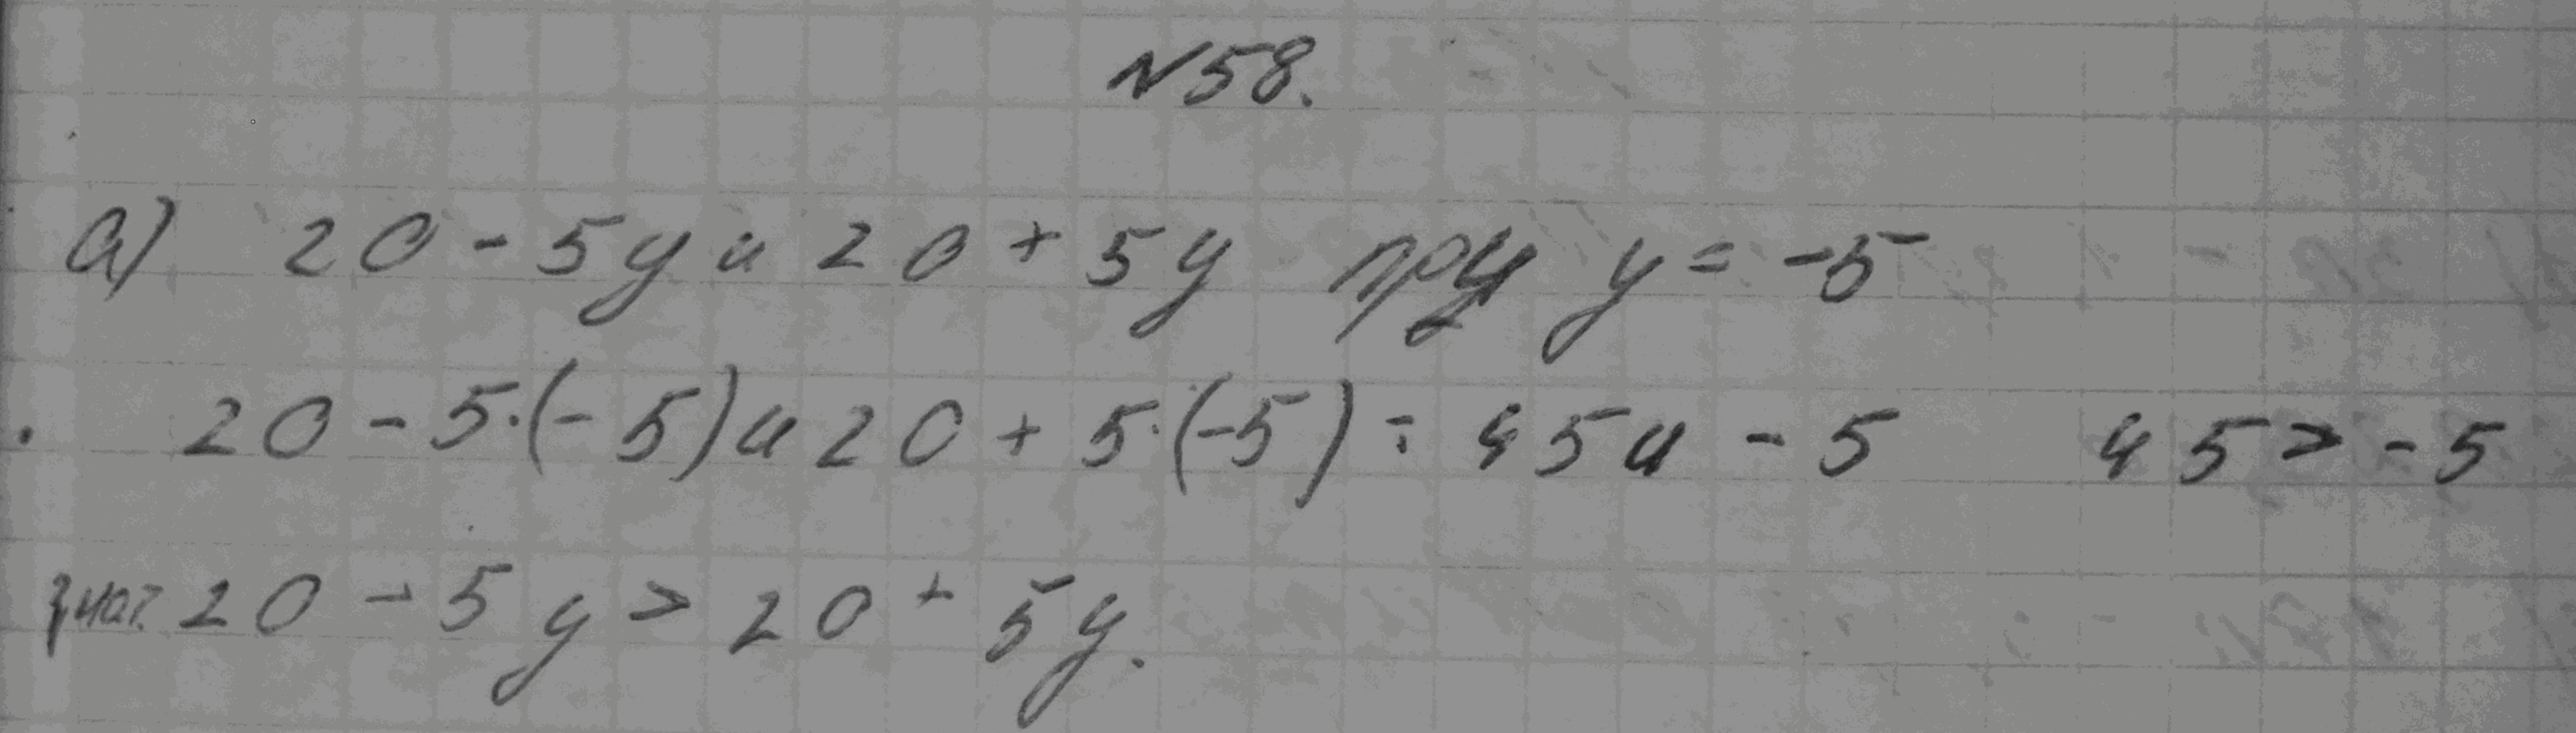 №58.
а) 20 - 5y и 20 + 5y при y = -5
20 - 5·(-5) и 20 + 5·(-5) = 45 и -5 45 > -5
знач. 20 - 5y > 20 + 5y.